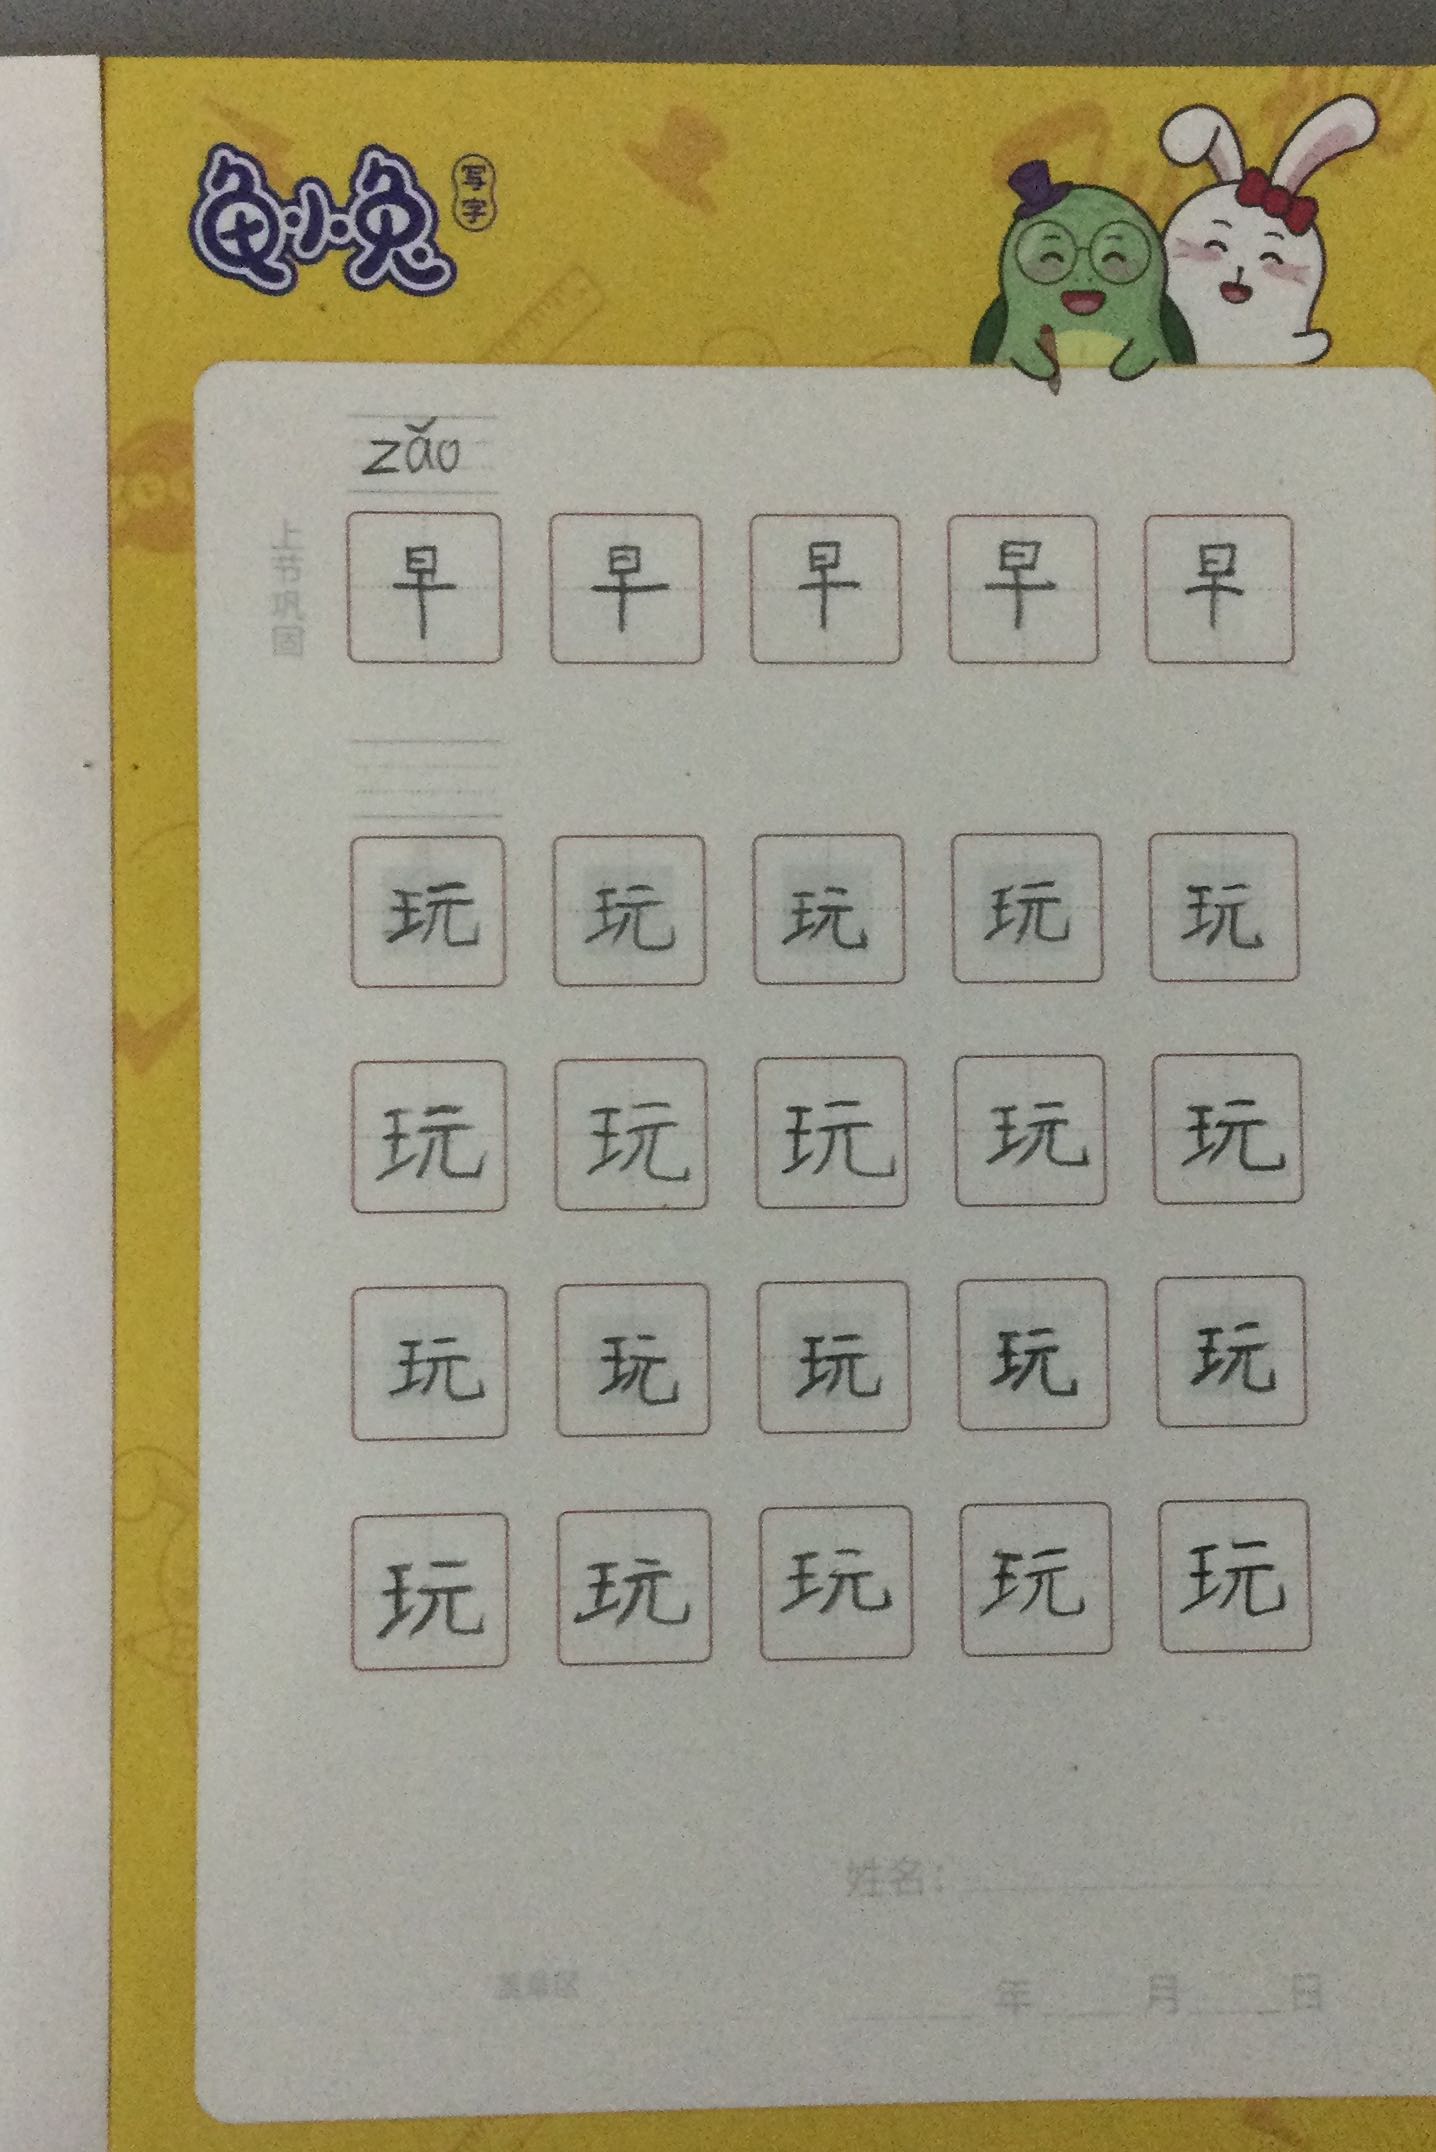 龟小兔
写字
zǎo
上节巩固
早 早 早 早 早
玩 玩 玩 玩 玩
玩 玩 玩 玩 玩
玩 玩 玩 玩 玩
玩 玩 玩 玩 玩
姓名：
年 月 日